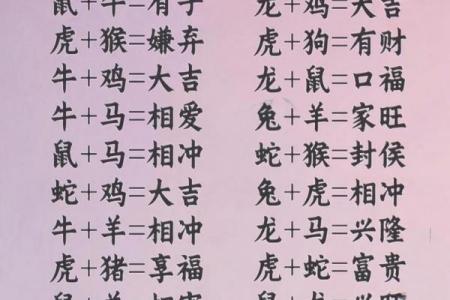 鼠+牛=有子 龙+鸡=大吉
虎+猴=嫌弃 虎+狗=有财
牛+鸡=大吉 龙+鼠=口福
牛+马=相爱 兔+羊=家旺
鼠+马=相冲 蛇+猴=封侯
蛇+鸡=大吉 兔+虎=相冲
牛+羊=相冲 龙+马=兴隆
虎+猪=享福 虎+蛇=富贵